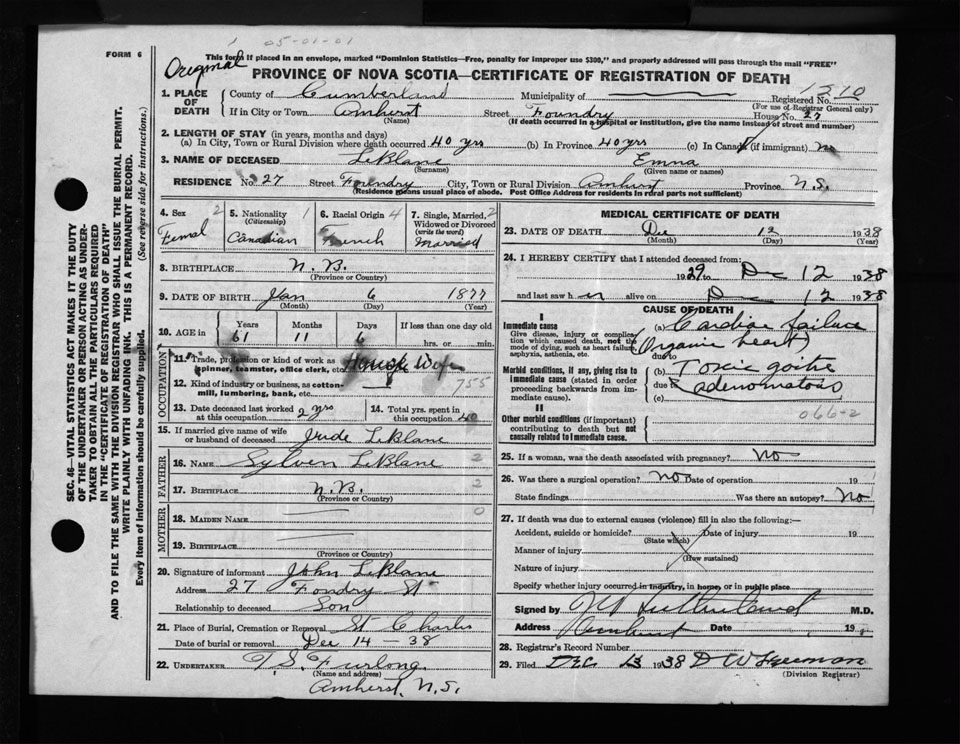 FORM 6
1 05-01-01
Original
This form if placed in an envelope, marked "Dominion Statistics—Free, penalty for improper use $300," and properly addressed will pass through the mail "FREE"
PROVINCE OF NOVA SCOTIA—CERTIFICATE OF REGISTRATION OF DEATH
1. PLACE OF DEATH County of Cumberland Municipality of Registered No. 1210
(For use of Registrar General only)
If in City or Town Amherst Street Foundry House No. 27
(Name) (If death occurred in a hospital or institution, give the name instead of street and number)
2. LENGTH OF STAY (in years, months and days)
(a) In City, Town or Rural Division where death occurred 40 yrs (b) In Province 40 yrs (c) In Canada (if immigrant) no
3. NAME OF DECEASED LeBlanc Emna
(Surname) (Given name or names)
RESIDENCE No. 27 Street Foundry City, Town or Rural Division Amherst Province N.S.
(Residence means usual place of abode. Post Office Address for residents in rural parts not sufficient)
4. Sex 2 5. Nationality 1 6. Racial Origin 4 7. Single, Married, 2
(Citizenship) Widowed or Divorced
(write the word)
Femal Canadian French Married
8. BIRTHPLACE N.B.
(Province or Country)
9. DATE OF BIRTH Jan 6 1877
(Month) (Day) (Year)
10. AGE in Years Months Days If less than one day old
61 11 6 hrs. or min.
OCCUPATION
11. Trade, profession or kind of work as House Wife
spinner, teamster, office clerk, etc.
12. Kind of industry or business, as cotton- 755
mill, lumbering, bank, etc.
13. Date deceased last worked 2 yrs 14. Total yrs. spent in
at this occupation in this occupation 40
15. If married give name of wife
or husband of deceased Jude LeBlanc
FATHER
16. NAME Sylven LeBlanc 2
17. BIRTHPLACE N.B. 2
(Province or Country)
MOTHER
18. MAIDEN NAME 0
19. BIRTHPLACE
(Province or Country)
20. Signature of informant John LeBlanc
Address 27 Fondry St
Relationship to deceased Son
21. Place of Burial, Cremation or Removal St Charles
Date of burial or removal Dec 14 - 38
22. UNDERTAKER T.S. Furlong
(Name and address)
Amherst, N.S.
MEDICAL CERTIFICATE OF DEATH
23. DATE OF DEATH Dec 12 1938
(Month) (Day) (Year)
24. I HEREBY CERTIFY that I attended deceased from:
1929 to Dec 12 1938
and last saw her alive on Dec 12 1938
CAUSE OF DEATH
I
Immediate cause
Give disease, injury or complication which caused death, not the mode of dying, such as heart failure, asphyxia, asthenia, etc.
(a) Cardiac failure
(Organic heart)
due to
Morbid conditions, if any, giving rise to immediate cause (stated in order proceeding backwards from immediate cause).
(b) Toxic goitre
due to (adenomatous)
(c)
II
066-2
Other morbid conditions (if important) contributing to death but not causally related to immediate cause.
25. If a woman, was the death associated with pregnancy? No
26. Was there a surgical operation? No Date of operation 19
State findings Was there an autopsy? No
27. If death was due to external causes (violence) fill in also the following:—
Accident, suicide or homicide? Date of injury 19
(State which)
Manner of injury
(How sustained)
Nature of injury
Specify whether injury occurred in industry, in home, or in public place
Signed by M.D.
Address Amherst Date 19
28. Registrar's Record Number
29. Filed DEC 13 1938 D W Freeman
(Division Registrar)
SEC. 46—VITAL STATISTICS ACT MAKES IT THE DUTY
OF THE UNDERTAKER OR PERSON ACTING AS UNDER-
TAKER TO OBTAIN ALL THE PARTICULARS REQUIRED
IN THE "CERTIFICATE OF REGISTRATION OF DEATH"
AND TO FILE THE SAME WITH THE DIVISION REGISTRAR WHO SHALL ISSUE THE BURIAL PERMIT.
WRITE PLAINLY WITH UNFADING INK. THIS IS A PERMANENT RECORD.
Every item of information should be carefully supplied. (See reverse side for instructions.)